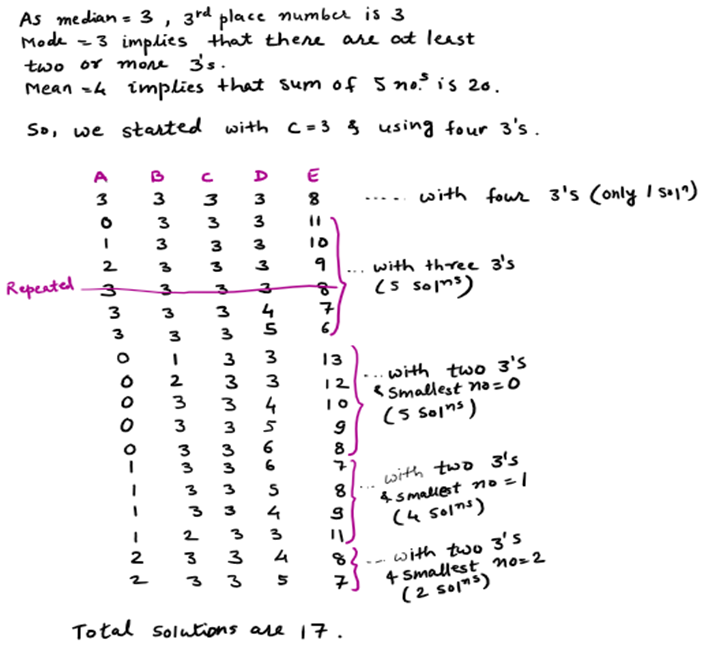 As median = 3, 3rd place number is 3
Mode = 3 implies that there are at least
two or more 3's.
Mean = 4 implies that sum of 5 no.s is 20.
So, we started with c = 3 & using four 3's.
A B C D E
3 3 3 3 8 ..... with four 3's (only 1 soln)
0 3 3 3 11
1 3 3 3 10
2 3 3 3 9 ... with three 3's
Repeated 3 3 3 3 8 (5 solns)
3 3 3 4 7
3 3 3 5 6
0 1 3 3 13
0 2 3 3 12 ... with two 3's
0 3 3 4 10 & smallest no = 0
0 3 3 5 9 (5 solns)
0 3 3 6 8
1 3 3 6 7 ... with two 3's
1 3 3 5 8 & smallest no = 1
1 3 3 4 9 (4 solns)
1 2 3 3 11
2 3 3 4 8 ... with two 3's
2 3 3 5 7 & smallest no = 2
(2 solns)
Total solutions are 17.